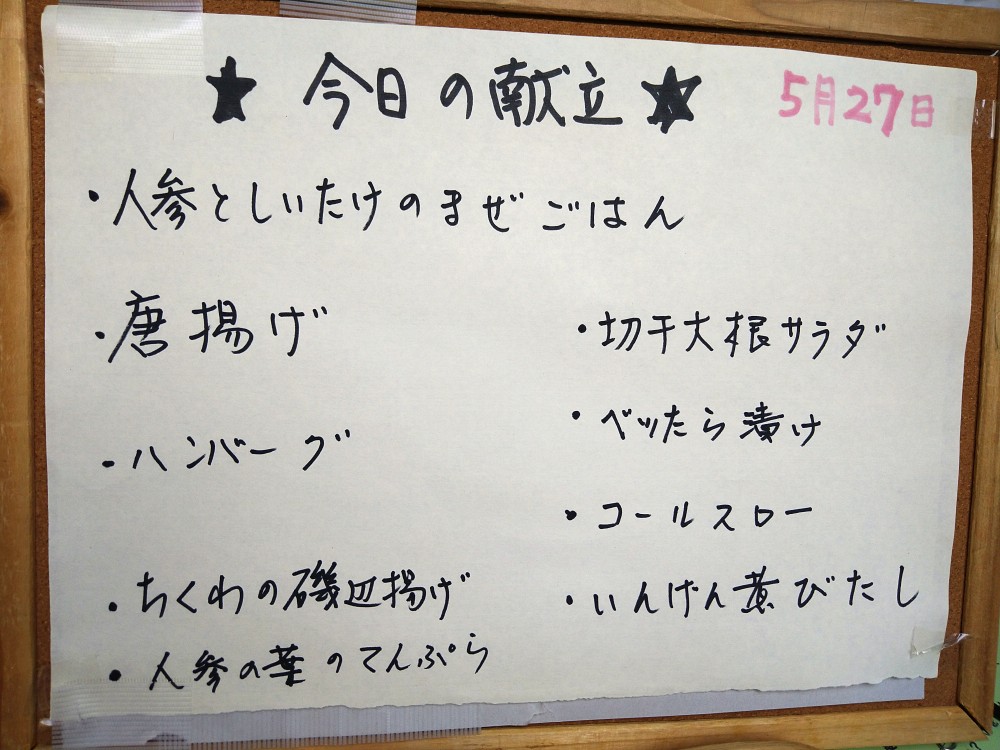 ★ 今日の献立 ★
5月27日
・人参としいたけのまぜごはん
・唐揚げ
・ハンバーグ
・ちくわの磯辺揚げ
・人参の葉のてんぷら
・切干大根サラダ
・ベッたら漬け
・コールスロー
・いんげん煮びたし